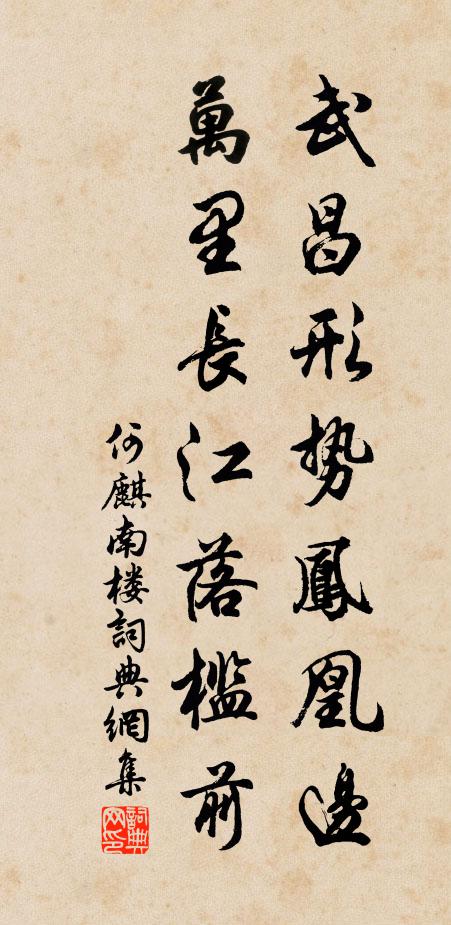 武昌形势鳳凰邊
萬里長江落檻前
何麒南楼詞典網集
詞典网印